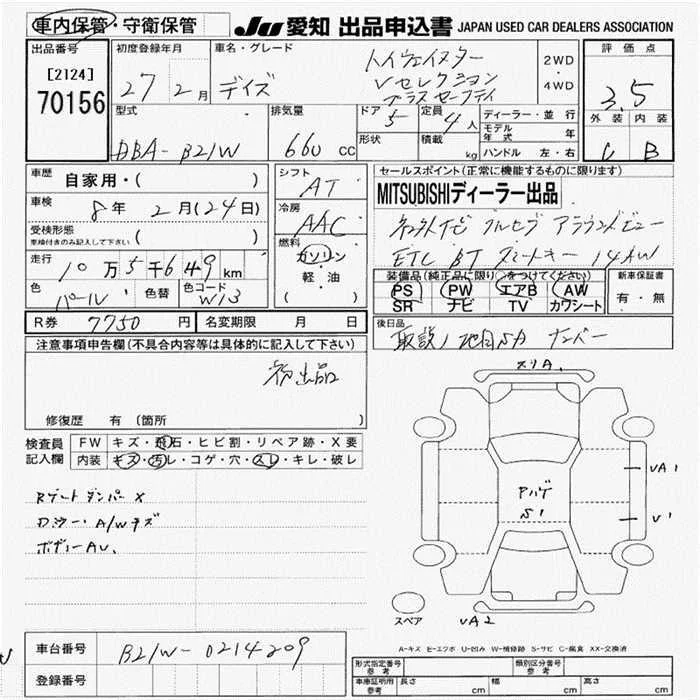 車内保管・守衛保管 JU 愛知 出品申込書 JAPAN USED CAR DEALERS ASSOCIATION
出品番号 初度登録年月 車名・グレード 評価点
[2124] 27 2月 デイズ ハイウェイスター 2WD・4WD 3.5
70156 Vセレクション
プラスセーフティ
型式 排気量 ドア 定員 ディーラー・並行 外装 内装
DBA-B21W 660 cc 5 4人 モデル年式 年 C B
形状 積載 kg ハンドル 左・右
車歴 自家用・( ) シフト AT セールスポイント(正常に機能するものに限ります)
車検 8年 2月(24日) 冷房 AAC MITSUBISHIディーラー出品
受検形態 ナビ フルセグ アラウンドビュー
車検付きのみ記入して下さい( ) 燃料 ETC BT スマートキー 14AW
走行 10万5千649km ガソリン 装備品(純正品に限り○をつけてください) 新車保証書
軽・油 PS PW エアB AW 有・無
色 パール 色替 色コード W13 ( ) SR ナビ TV カワシート
R券 7750円 名変期限 月 日 後日品
取説 ナンバー
注意事項申告欄(不具合内容等は具体的に記入して下さい)
初出品
修復歴 有 (箇所 )
検査員 FW キズ・飛石・ヒビ割・リペア跡・X要
記入欄 内装 キズ・汚レ・コゲ・穴・スレ・キレ・破レ
Rゲートダンパー X
A/Wキズ
ボディーAU、
スリA、
アハゲ
S1
UA1
U1
スペア
UA2
A-キズ E-エクボ U-凹み W-補修跡 S-サビ C-腐食 XX-交換済
車台番号 B21W-0214209
登録番号
形式指定番号 参考 類別区分番号 参考
車庫証明用 参考 長さ cm 幅 cm 高さ cm